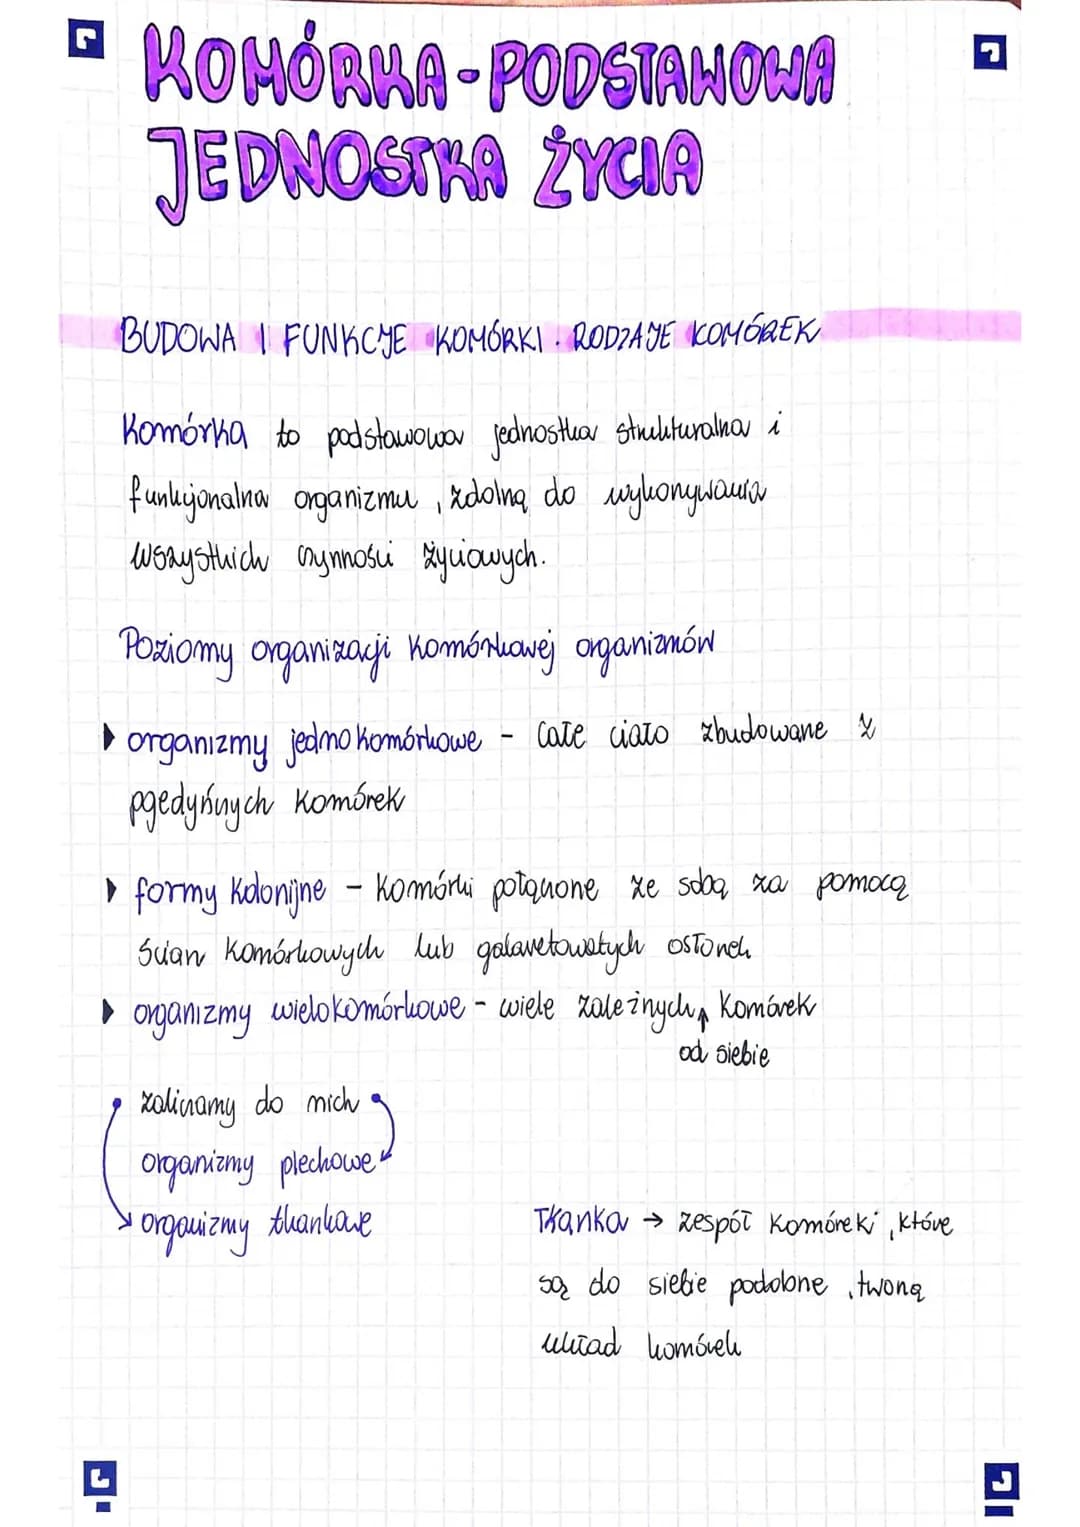 KOMÓRKA - PODSTAWOWA
JEDNOSTKA ŻYCIA
BUDOWA I FUNKCJE KOMÓRKI. RODZAJE KOMÓREK
Komórka to podstawowa jednostka strukturalna i
funkcjonalna organizmu, zdolną do wykonywania
wszystkich czynności życiowych.
Poziomy organizacji komórkowej organizmów
organizmy jednokomórkowe - całe ciało zbudowane z
pojedyńczych komórek
formy kolonijne - komórki połączone ze sobą za pomocą
ścian komórkowych lub galaretowatych osłonek
organizmy wielokomórkowe - wiele zależnych komórek
od siebie
zaliczamy do nich
organizmy plechowe
organizmy tkankowe
Tkanka → zespół komóreki, które
są do siebie podobne, tworzą
układ komórek